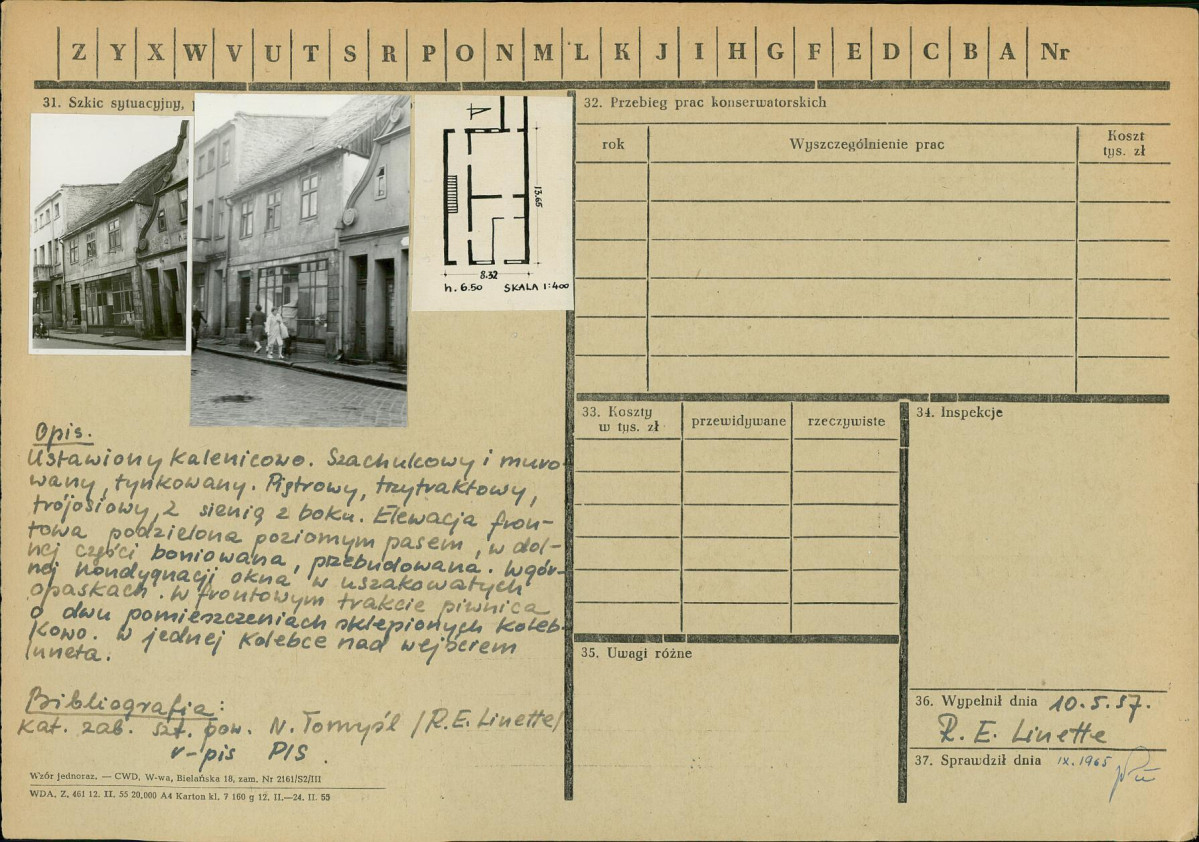 Z Y X W V U T S R P O N M L K J I H G F E D C B A Nr
31. Szkic sytuacyjny,
13.65
8.32
h. 6.50 SKALA 1:400
Opis.
Ustawiony kalenicowo. Szachulcowy i muro-
wany, tynkowany. Piętrowy, trzytraktowy,
trójosiowy, z sienią z boku. Elewacja fron-
towa podzielona poziomym pasem, w dol-
nej części boniowana, przebudowana. W gór-
nej kondygnacji okna w uszakowatych
opaskach. W frontowym trakcie piwnica
o dwu pomieszczeniach sklepionych koleb-
kowo. W jednej kolebce nad wejściem
luneta.
Bibliografia:
Kat. zab. szt. pow. N. Tomyśl /R.E. Linette/
r-pis PIS.
Wzór jednoraz. — CWD, W-wa, Bielańska 18, zam. Nr 2161/S2/III
WDA. Z. 461 12. II. 55 20.000 A4 Karton kl. 7 160 g 12. II.—24. II. 55
32. Przebieg prac konserwatorskich
rok Wyszczególnienie prac Koszt
tys. zł
33. Koszty
w tys. zł
przewidywane rzeczywiste
34. Inspekcje
35. Uwagi różne
36. Wypełnił dnia 10.5.57.
R. E. Linette
37. Sprawdził dnia IX.1965